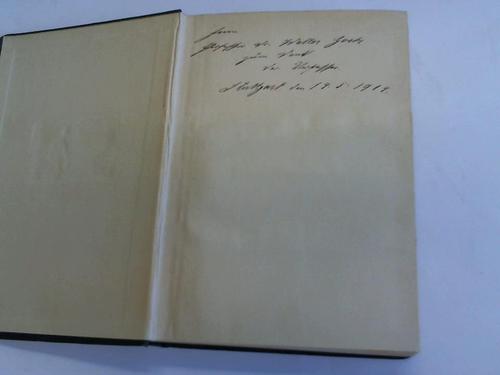 Herrn
Assessor Dr. Walter Goetz
zum Dank
der Verfasser
Stuttgart den 19. 5. 1919.